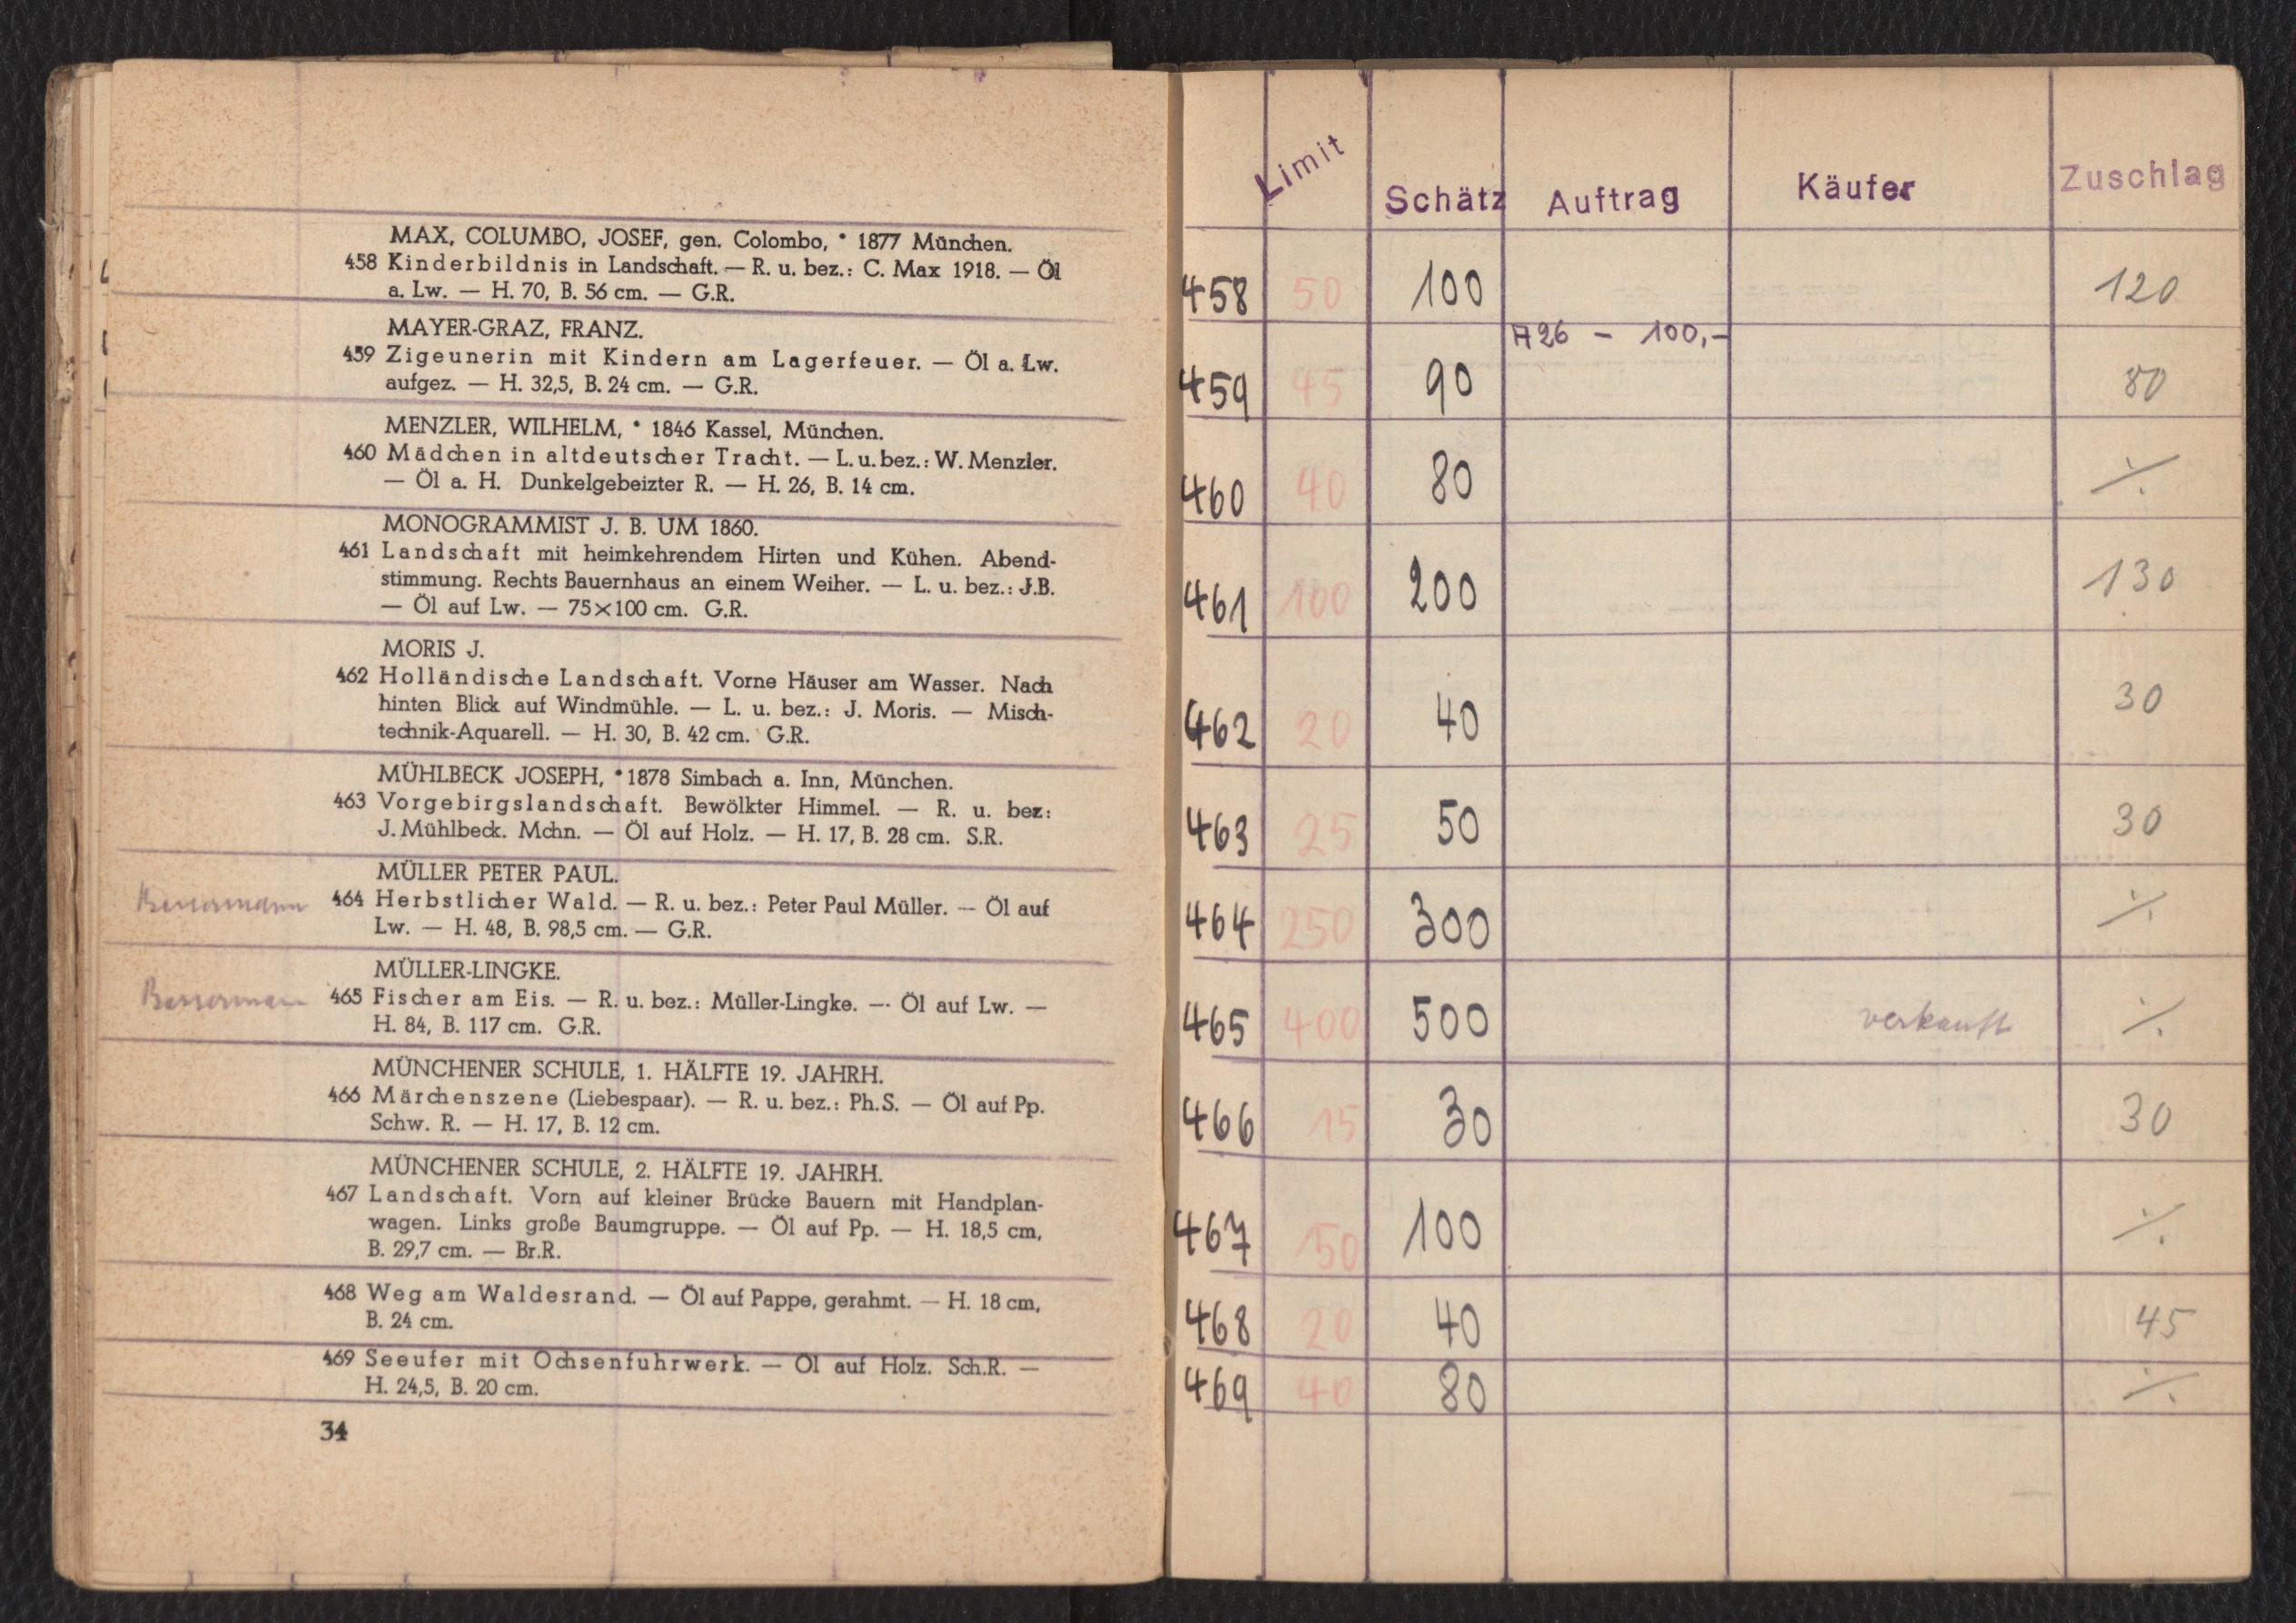 MAX, COLUMBO, JOSEF, gen. Colombo, * 1877 München.
458 Kinderbildnis in Landschaft. — R. u. bez.: C. Max 1918. — Öl
a. Lw. — H. 70, B. 56 cm. — G.R.
MAYER-GRAZ, FRANZ.
459 Zigeunerin mit Kindern am Lagerfeuer. — Öl a. Lw.
aufgez. — H. 32,5, B. 24 cm. — G.R.
MENZLER, WILHELM, * 1846 Kassel, München.
460 Mädchen in altdeutscher Tracht. — L. u. bez.: W. Menzler.
— Öl a. H. Dunkelgebeizter R. — H. 26, B. 14 cm.
MONOGRAMMIST J. B. UM 1860.
461 Landschaft mit heimkehrendem Hirten und Kühen. Abend-
stimmung. Rechts Bauernhaus an einem Weiher. — L. u. bez.: J.B.
— Öl auf Lw. — 75×100 cm. G.R.
MORIS J.
462 Holländische Landschaft. Vorne Häuser am Wasser. Nach
hinten Blick auf Windmühle. — L. u. bez.: J. Moris. — Misch-
technik-Aquarell. — H. 30, B. 42 cm. G.R.
MÜHLBECK JOSEPH, * 1878 Simbach a. Inn, München.
463 Vorgebirgslandschaft. Bewölkter Himmel. — R. u. bez:
J. Mühlbeck. Mchn. — Öl auf Holz. — H. 17, B. 28 cm. S.R.
MÜLLER PETER PAUL.
464 Herbstlicher Wald. — R. u. bez.: Peter Paul Müller. — Öl auf
Lw. — H. 48, B. 98,5 cm. — G.R.
MÜLLER-LINGKE.
465 Fischer am Eis. — R. u. bez.: Müller-Lingke. — Öl auf Lw. —
H. 84, B. 117 cm. G.R.
MÜNCHENER SCHULE, 1. HÄLFTE 19. JAHRH.
466 Märchenszene (Liebespaar). — R. u. bez.: Ph.S. — Öl auf Pp.
Schw. R. — H. 17, B. 12 cm.
MÜNCHENER SCHULE, 2. HÄLFTE 19. JAHRH.
467 Landschaft. Vorn auf kleiner Brücke Bauern mit Handplan-
wagen. Links große Baumgruppe. — Öl auf Pp. — H. 18,5 cm,
B. 29,7 cm. — Br.R.
468 Weg am Waldesrand. — Öl auf Pappe, gerahmt. — H. 18 cm,
B. 24 cm.
469 Seeufer mit Ochsenfuhrwerk. — Öl auf Holz. Sch.R. —
H. 24,5, B. 20 cm.
34
Limit Schätz Auftrag Käufer Zuschlag
458 50 100 120
A26 - 100,-
459 45 90 80
460 40 80 ⁒
461 100 200 130
462 20 40 30
463 25 50 30
464 250 300 ⁒
465 400 500 verkauft ⁒
466 15 30 30
467 50 100 ⁒
468 20 40 45
469 40 80 ⁒